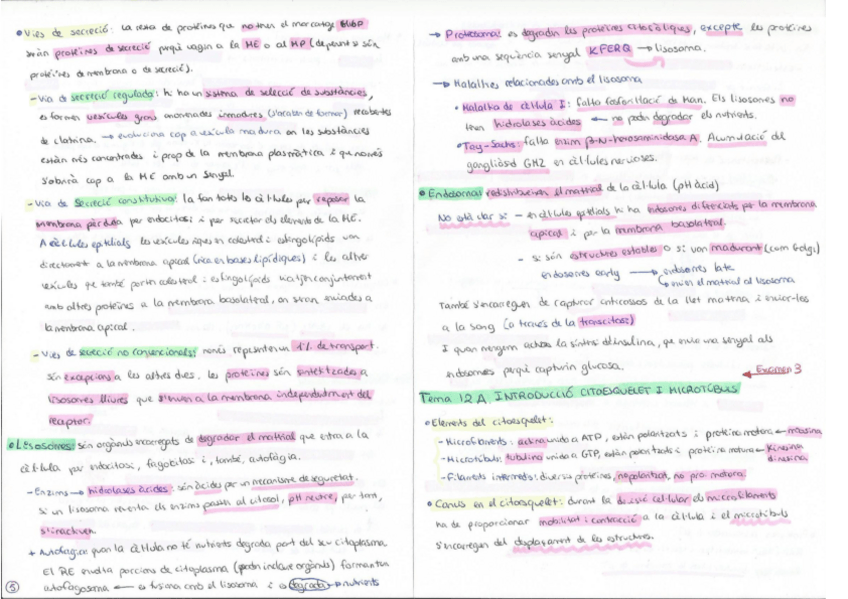 • Vies de secreció: la resta de proteïnes que no tenen el marcatge
seran proteïnes de secreció perquè vagin a la ME o al MP (depenent si són
proteïnes de membrana o de secreció).
- Via de secreció regulada: hi ha un sistema de selecció de substàncies,
es formen vesícules grans anomenades inmadures (s'acaben de formar) recobertes
de clatrina. → evoluciona cap a vesícula madura on les substàncies
estàn més concentrades i prop de la membrana plasmàtica i que només
s'obrirà cap a la ME amb un senyal
- Via de secreció constitutiva: la fan totes les cèl·lules per reposar la
membrana perduda per endocitosi i per secretar els elements de la ME.
A cèl·lules epitelials les vesícules riques en colesterol i esfingolípids van
directament a la membrana apical (rica en basses lipídiques) i les altres
vesícules que també porten colesterol i esfingolípids viatgen conjuntament
amb altres proteïnes a la membrana basolateral, on seran enviades a
la membrana apical.
- Vies de secreció no convencionals: només representen un 1% de transport.
són excepcions a les altres dues. Les proteïnes són sintetitzades a
ribosomes lliures que s'uneixen a la membrana independentment del
receptor.
• Lisosomes: són orgànuls encarregats de degradar el material que entra a la
cèl·lula per endocitosi, fagocitosi i, també, autofàgia.
- Enzims → hidrolases àcides: són àcides per un mecanisme de seguretat.
si un lisosoma rebenta els enzims passen al citosol, pH neutre, per tant,
s'inactiven.
+ Autofàgia: quan la cèl·lula no té nutrients degrada part del seu citoplasma
El RE envolta porcions de citoplasma (poden incloure orgànuls) formant un
autofagosoma ← es fusiona amb el lisosoma i es degrada → nutrients
5
→ Proteosoma: es degraden les proteïnes citosòliques, excepte les proteïnes
amb una seqüència senyal KFERQ → lisosoma.
→ Malalties relacionades amb el lisosoma
• Malaltia de cèl·lula I: falta fosforilació de Man. Els lisosomes no
tenen hidrolases àcides ← no poden degradar els nutrients.
• Tay-Sachs: falta enzim β-N-hexosaminidasa A. Acumulació del
gangliòsid GM2 en cèl·lules nervioses.
• Endosomes: redistribueixen el material de la cèl·lula (pH àcid)
No està clar si - en cèl·lules epitelials hi ha endosomes diferenciats per la membrana
apical i per la membrana basolateral.
- si són estructures estables o si van madurant (com Golgi)
endosomes early → endosomes late
↳ envien el material al lisosoma
També s'encarreguen de capturar anticossos de la llet materna i enviar-les
a la sang (a través de la transcitosi)
I quan mengem activa la síntesi d'insulina, que envia una senyal als
endosomes perquè capturin glucosa.
← Examen 3
Tema 12 A. INTRODUCCIÓ CITOESQUELET I MICROTÚBULS
• Elements del citoesquelet:
- Microfilaments: actina unida a ATP, estàn polaritzats i proteïna motora ← miosina
- Microtúbuls: tubulina unida a GTP, estàn polaritzats i proteïna motora ← Kinesina
dineïna
- Filaments intermedis: diverses proteïnes, no polaritzat, no pro. motora.
• Canvis en el citoesquelet: durant la divisió cel·lular els microfilaments
ha de proporcionar mobilitat i contracció a la cèl·lula i el microtúbuls
s'encarreguen del desplaçament de les estructures.